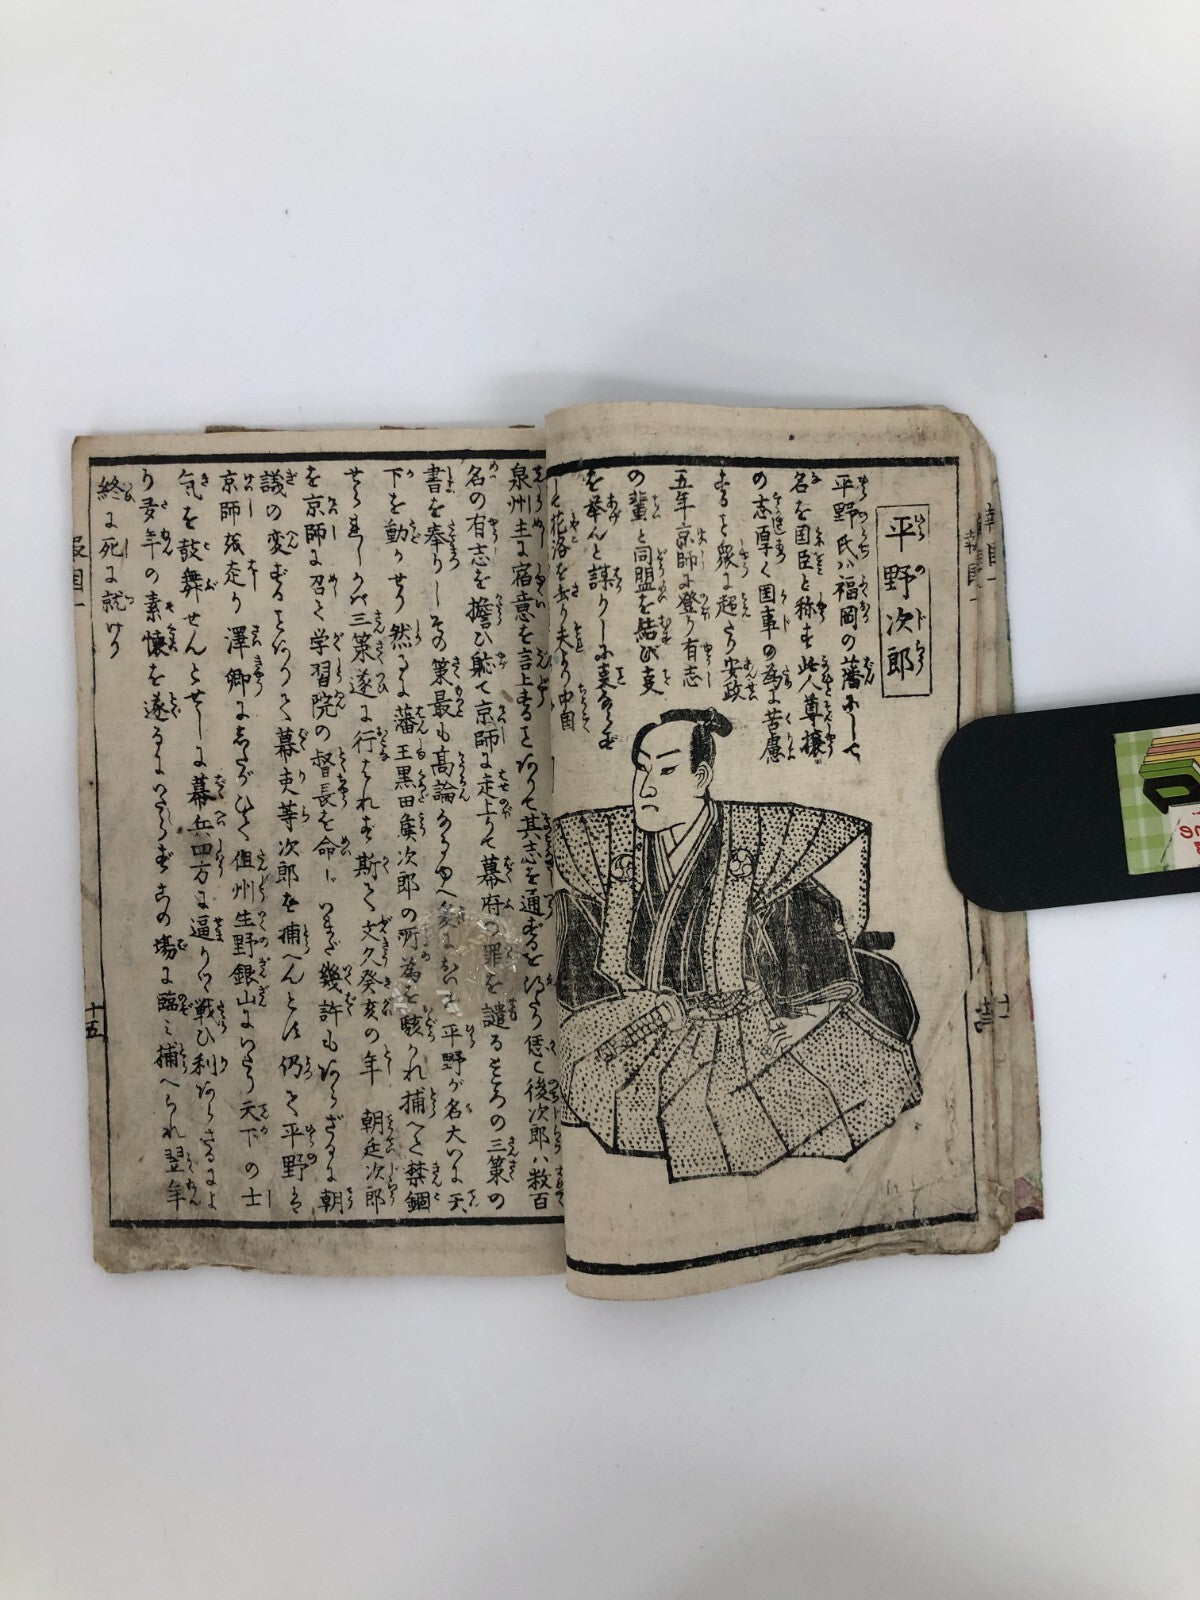 平野次郎
平野氏ハ福岡の藩にして
名を国臣と称す此人尊攘
の志厚く国事の為に苦慮
することを衆に超たり安政
五年京師に登り有志
の輩と同盟を結び支
を挙んと謀りしに
して花洛を去り夫より中国
泉州主に宿意を言上することありて其志を通ずるを得たり後次郎ハ数百
名の有志を擔ひ馳て京師に走上りて幕府の罪を譴るところの三策の
書を奉りしその策最も高論なるゆへ 平野が名大いに天
下を動かせり然るに藩主黒田 次郎の所為を駭かれ捕へて禁錮
せられしかバ三策遂に行はれず斯て文久癸亥の年 朝廷次郎
を京師に召て学習院の督長を命じ いまだ幾許もあらざるに朝
議の変ずることありて幕吏等次郎を捕へんとす仍て平野は
京師を走り澤卿にしたがひて 但州生野銀山にいたり天下の士
気を鼓舞せんとせしに幕兵四方に逼りて戦ひ利あらざるによ
り年の素懐を遂るにいたらずその場に臨ミ捕へられ翌年
終に死に就けり
十五